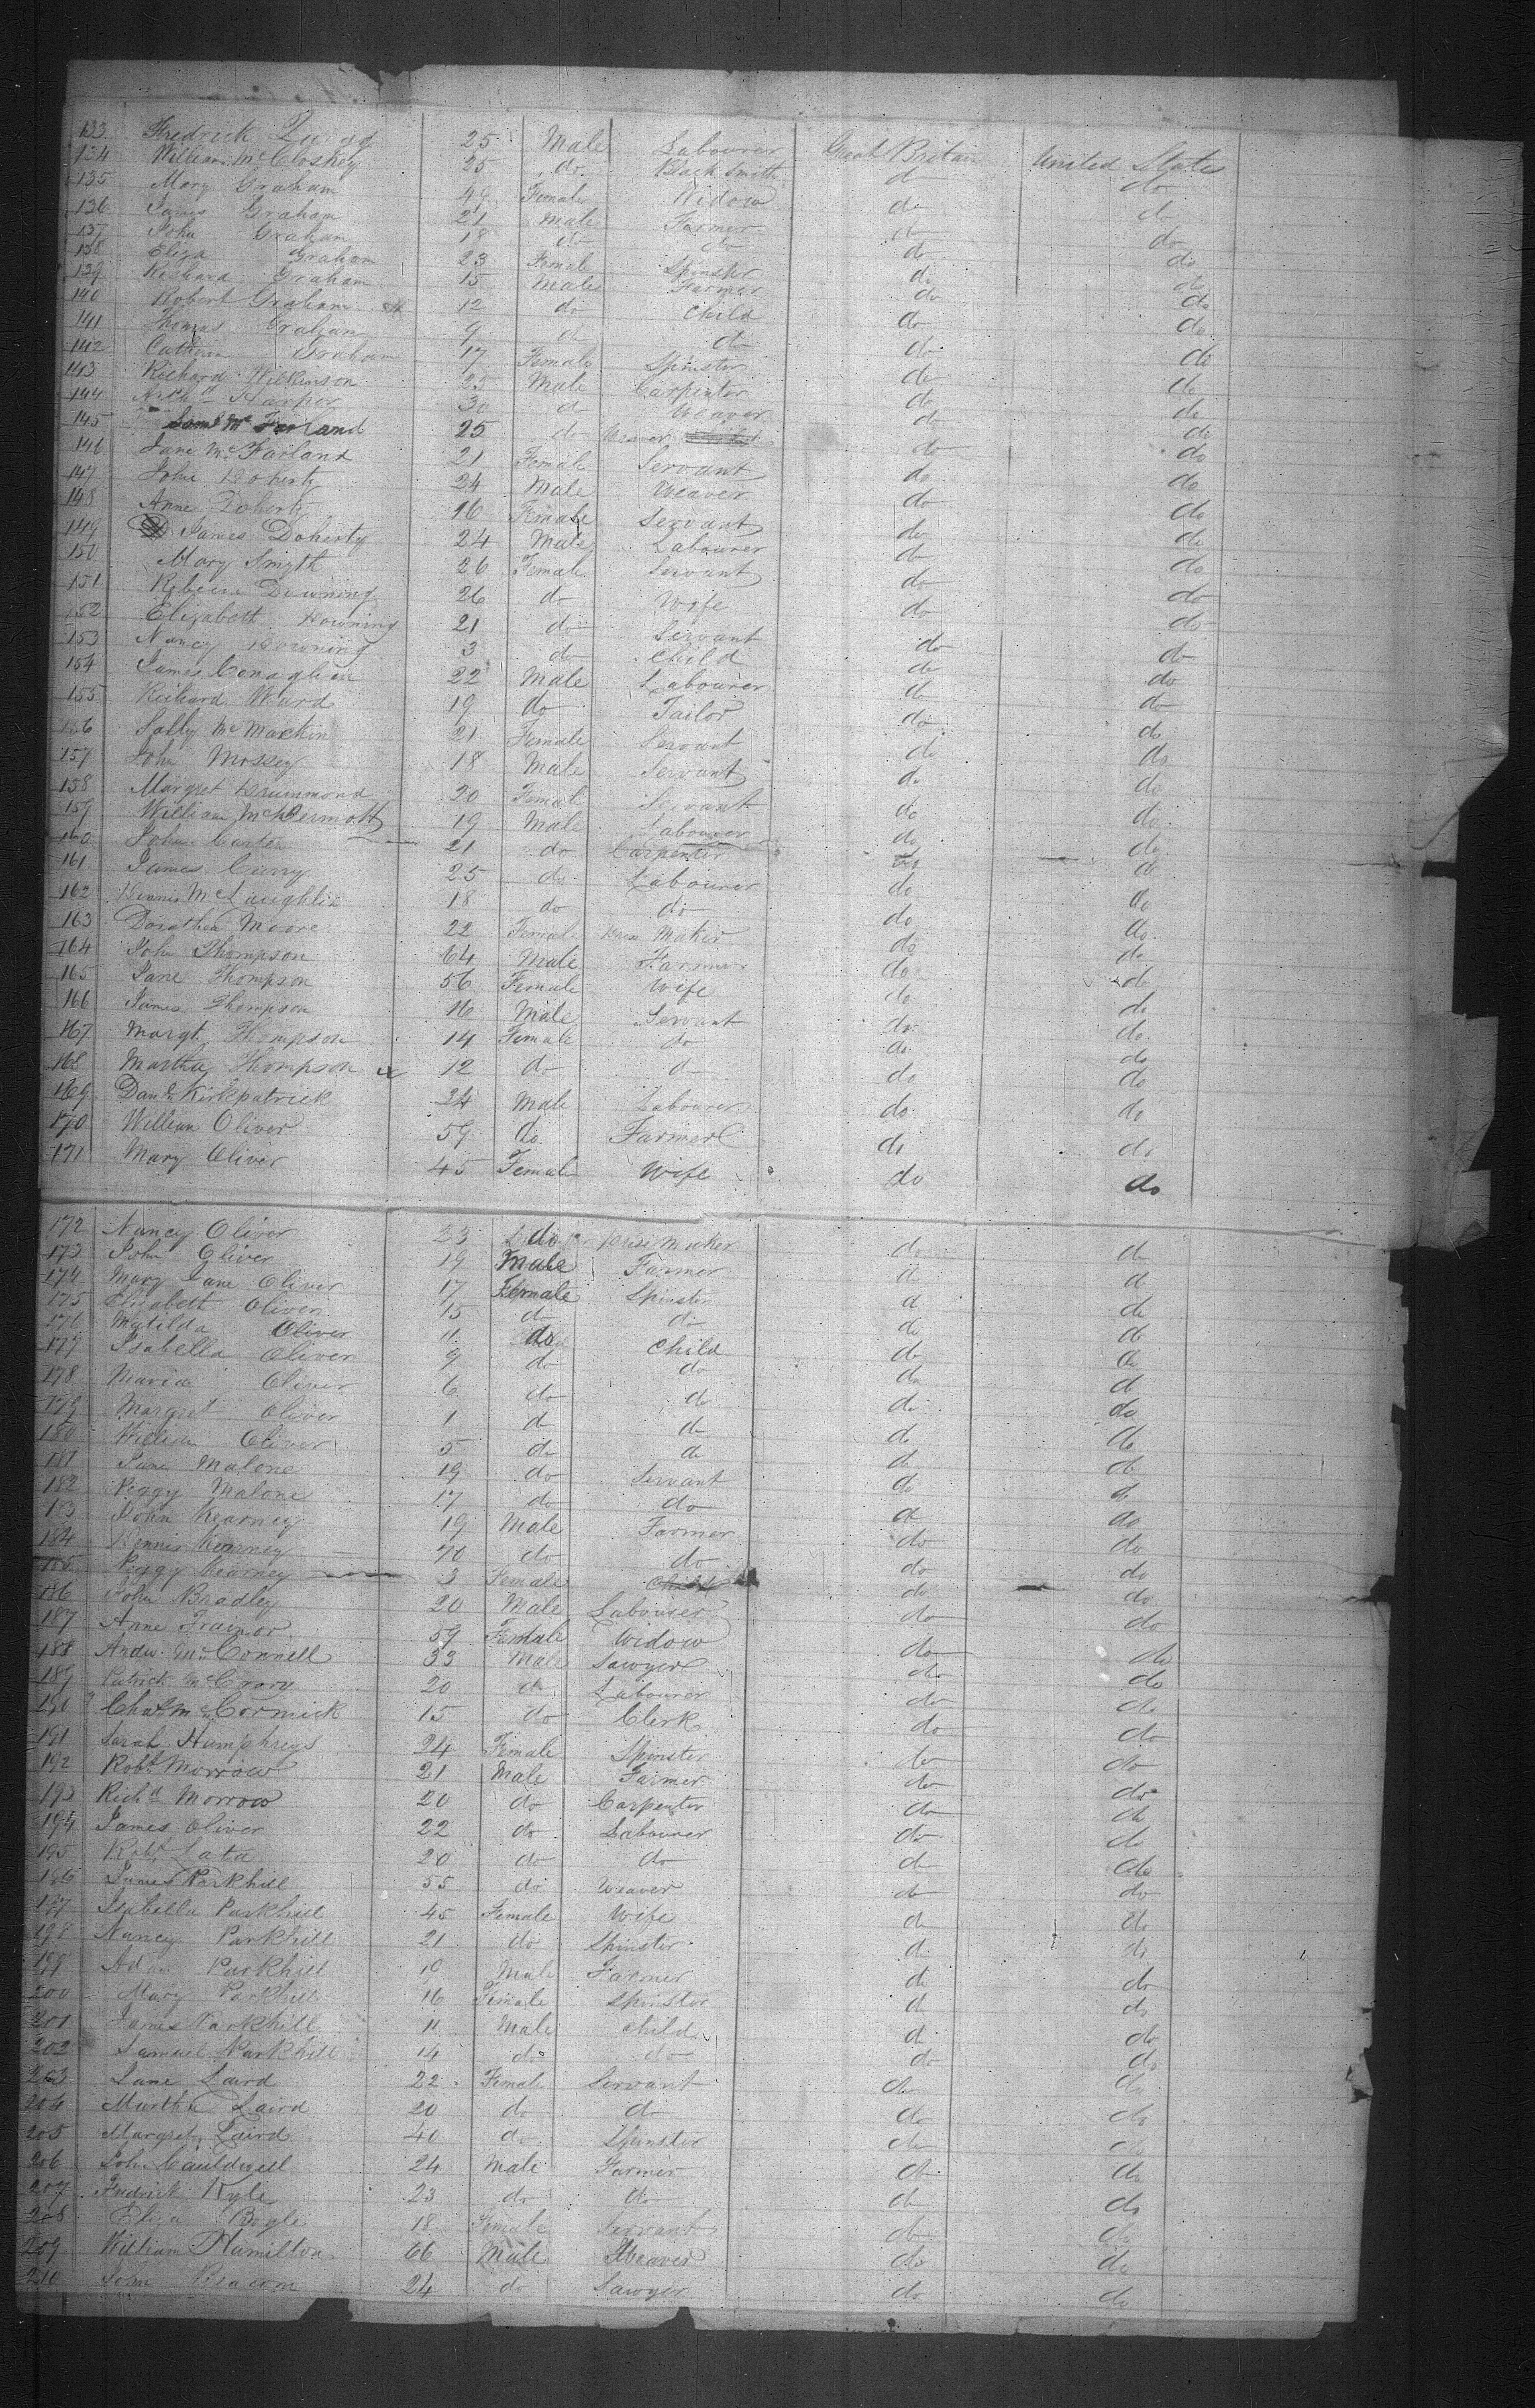 133 Fredrick 25 Male Labourer Great Britain United States
134 William McCloskey 25 do Black Smith do do
135 Mary Graham 49 Female Widow do do
136 James Graham 21 Male Farmer do do
137 John Graham 18 do do do do
138 Eliza Graham 23 Female Spinster do do
139 Richard Graham 15 Male Farmer do do
140 Robert Graham 12 do Child do do
141 Thomas Graham 9 do do do do
142 Graham 17 Female Spinster do do
143 Richard Wilkinson 25 Male Carpenter do do
144 Archd Harper 30 do Weaver do do
145 Saml McFarland 25 do Weaver do do
146 Jane McFarland 21 Female Servant do do
147 John Doherty 24 Male Weaver do do
148 Anne Doherty 16 Female Servant do do
149 James Doherty 24 Male Labourer do do
150 Mary Smyth 26 Female Servant do do
151 Downing 26 do Wife do do
152 Elizabeth Downing 21 do Servant do do
153 Nancy Downing 3 do Child do do
154 James Conaghen 22 Male Labourer do do
155 Richard Ward 19 do Tailor do do
156 Sally 21 Female Servant do do
157 John Mossey 18 Male Servant do do
158 Margret Drummond 20 Female Servant do do
159 William McDermott 19 Male Labourer do do
160 John Carter 21 do Carpenter do do
161 James Curry 25 do Labourer do do
162 Dennis McLaughlin 18 do do do do
163 Dorothea Moore 22 Female Dress Maker do do
164 John Thompson 64 Male Farmer do do
165 Jane Thompson 56 Female Wife do do
166 James Thompson 16 Male Servant do do
167 Margt Thompson 14 Female do do do
168 Martha Thompson 12 do do do do
169 Danl Kirkpatrick 24 Male Labourer do do
170 William Oliver 59 do Farmer do do
171 Mary Oliver 45 Female Wife do do
172 Nancy Oliver 23 do Dress Maker do do
173 John Oliver 19 Male Farmer do do
174 Mary Jane Oliver 17 Female Spinster do do
175 Elizabeth Oliver 15 do do do do
176 Matilda Oliver 11 do Child do do
177 Isabella Oliver 9 do do do do
178 Maria Oliver 6 do do do do
179 Margret Oliver 1 do do do do
180 William Oliver 5 do do do do
181 Jane Malone 19 do Servant do do
182 Peggy Malone 17 do do do do
183 John Kearney 19 Male Farmer do do
184 Dennis Kearney 70 do do do do
185 Peggy Kearney 3 Female Child do do
186 John Bradley 20 Male Labourer do do
187 Anne Trainor 59 Female Widow do do
188 Andw. McConnell 33 Male Sawyer do do
189 Patrick McCrory 20 do Labourer do do
190 Chas McCormick 15 do Clerk do do
191 Sarah Humphreys 24 Female Spinster do do
192 Robt Morrow 21 Male Farmer do do
193 Richd Morrow 20 do Carpenter do do
194 James Oliver 22 do Labourer do do
195 Robt Lata 20 do do do do
196 James Parkhill 55 do Weaver do do
197 Isabella Parkhill 45 Female Wife do do
198 Nancy Parkhill 21 do Spinster do do
199 Adam Parkhill 19 Male Farmer do do
200 Mary Parkhill 16 Female Spinster do do
201 James Parkhill 11 Male Child do do
202 Samuel Parkhill 14 do do do do
203 Jane Laird 22 Female Servant do do
204 Martha Laird 20 do do do do
205 Margret Laird 40 do Spinster do do
206 John Cauldwell 24 Male Farmer do do
207 Fredrick Kyle 23 do do do do
208 Eliza Boyle 18 Female Servant do do
209 William Hamilton 66 Male Weaver do do
210 John Beacom 24 do Sawyer do do